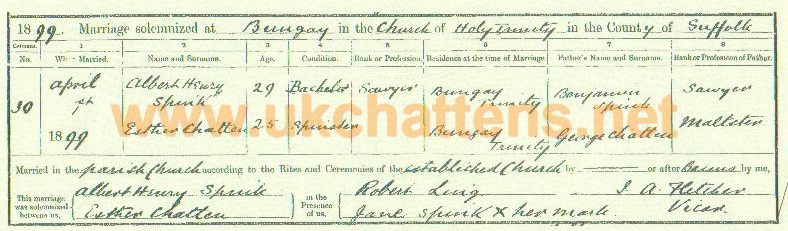 1899. Marriage solemnized at Bungay in the Church of Holy Trinity in the County of Suffolk
Columns. 1 2 3 4 5 6 7 8
No. When Married. Name and Surname. Age. Condition. Rank or Profession. Residence at the time of Marriage. Father's Name and Surname. Rank or Profession of Father.
30 April 1st 1899 Albert Henry Spink 29 Bachelor Sawyer Bungay Trinity Benjamin Spink Sawyer
Esther Chatten 25 Spinster Bungay Trinity George Chatten Maltster
www.ukchattens.net
Married in the parish Church according to the Rites and Ceremonies of the established Church by —— or after Banns by me,
This marriage was solemnized between us, Albert Henry Spink in the Presence of us, Robert J. A. Fletcher
Esther Chatten Jane Spink X her mark Vicar.